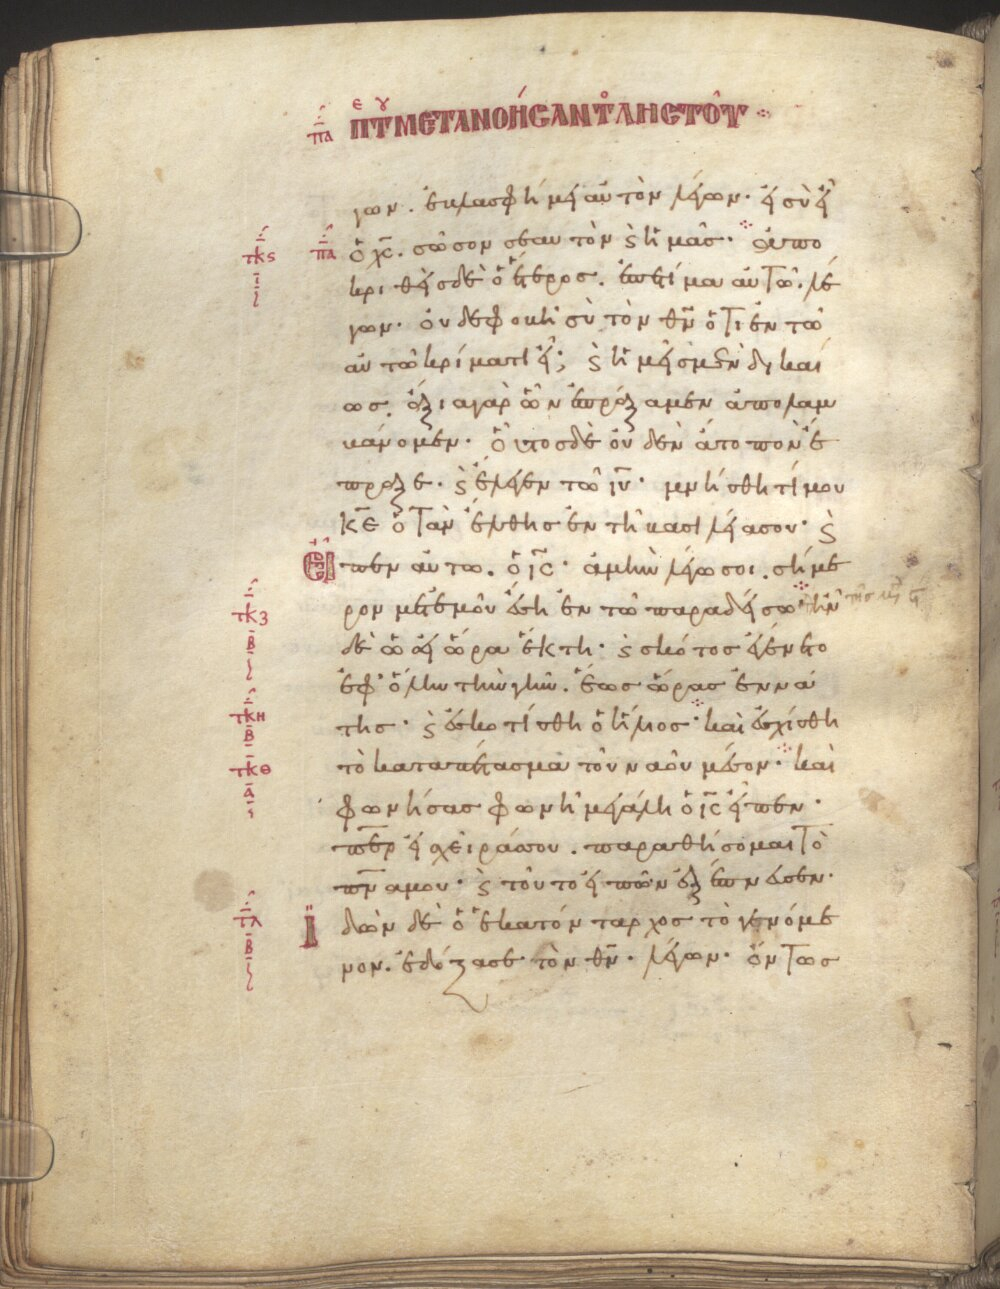 πα πευ του μετανοήσαντος ληστοῦ
γων. ἐβλασφήμει αὐτὸν λέγων· εἰ σὺ εἶ
τκϛ ι πα ὁ χς. σῶσον σεαυτὸν ϗ ἡμᾶς· ἀπο
κριθεὶς δὲ ὁ ἕτερος. ἐπετίμα αὐτῶ. λέ
γων· οὐδὲ φοβῆ σὺ τὸν θν ὅτι ἐν τῶ
αὐτῶ κρίματι εἶ; ϗ ἡμεῖς μὲν δικαί
ως. ἄξια γὰρ ὧν ἐπράξαμεν ἀπολαμ
βάνομεν· οὗτος δὲ οὐδὲν ἄτοπον ἔ
πραξε· ϗ ἔλεγεν τῶ ιυ· μνήσθητί μου
κε ὅταν ἔλθης ἐν τῆ βασιλεία σου· ϗ
εἶπεν αὐτω. ὁ ις· ἀμὴν λέγω σοι. σήμε
τκζ β ρον μετ ἐμοῦ ἔση ἐν τῶ παραδείσω· ἦν
δὲ ὡσεὶ ὥρα ἕκτη· ϗ σκότος ἐγένετο
ἐφ ὅλην τὴν γῆν. ἕως ὥρας ἐννά
τκη β της· ϗ ἐσκοτίσθη ὁ ἥλιος· καὶ ἐσχίσθη
τκθ α τὸ καταπέτασμα τοῦ ναοῦ μέσον· καὶ
φωνήσας φωνῆ μεγάλη ὁ ις εἶπεν·
περ εἰς χεῖράς σου. παραθήσομαι τὸ
πνα μου· ϗ τοῦτο εἰπὼν ἐξέπνευσεν·
τλ β ἰδὼν δὲ ὁ ἑκατόνταρχος τὸ γενόμε
νον. ἐδόξασε τὸν θν· λέγων· ὄντως